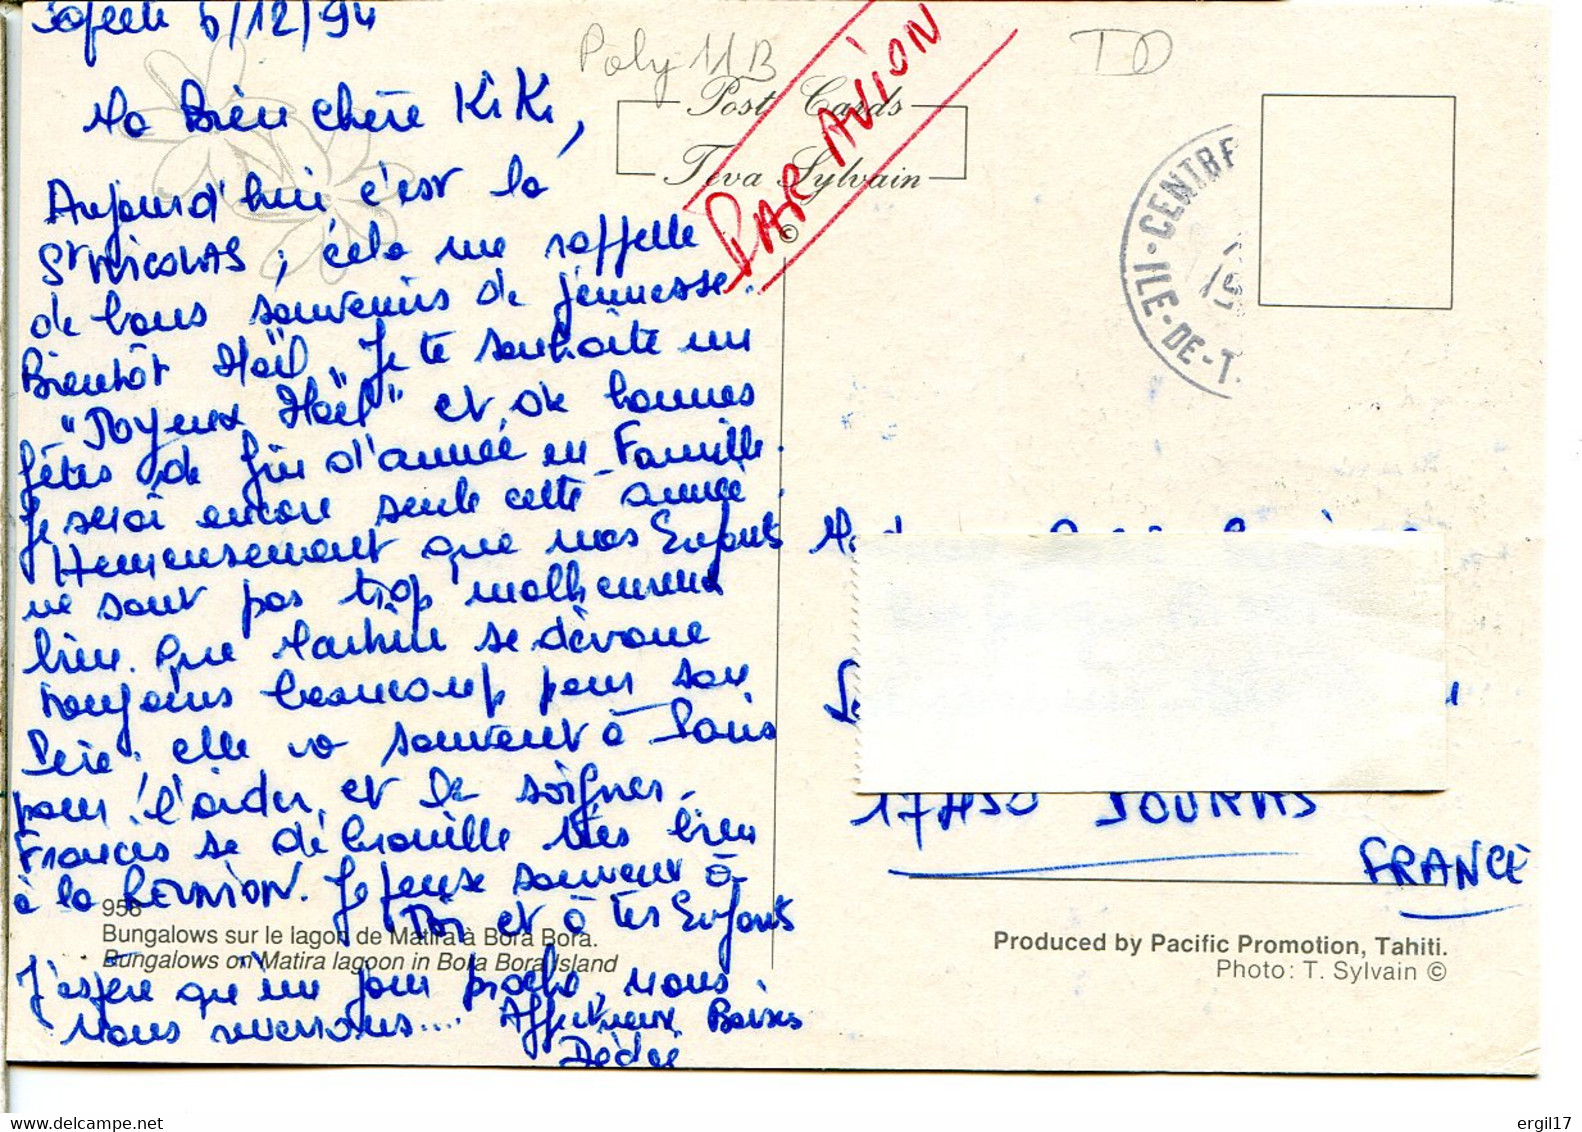 Papeete 6/12/94
Ma Bien chère KiKi,
Aujourd'hui c'est la
St NICOLAS ; cela me rappelle
de bons souvenirs de jeunesse.
Bientôt Noël, Je te souhaite un
"Joyeux Noël" et de bonnes
fêtes de fin d'année en Famille.
Je serai encore seule cette année.
Heureusement que mes Enfants
ne sont pas trop malheureux
bien que Martine se dévoue
toujours beaucoup pour son
Père. elle va souvent à Paris
pour l'aider et le soigner.
Francis se débrouille très bien
à la REUNION. Je pense souvent à
Toi et à tes Enfants
J'espère qu'un jour proche, nous
nous reverrons.... Affectueux Baisers
Dédée
Poly 11B
TD
Post Cards
Teva Sylvain
©
PAR AVION
CENTRE
ILE-DE-T.
FRANCE
958
Bungalows sur le lagon de Matira à Bora Bora.
Bungalows on Matira lagoon in Bora Bora Island
Produced by Pacific Promotion, Tahiti.
Photo: T. Sylvain ©
www.delcampe.net
ergil17